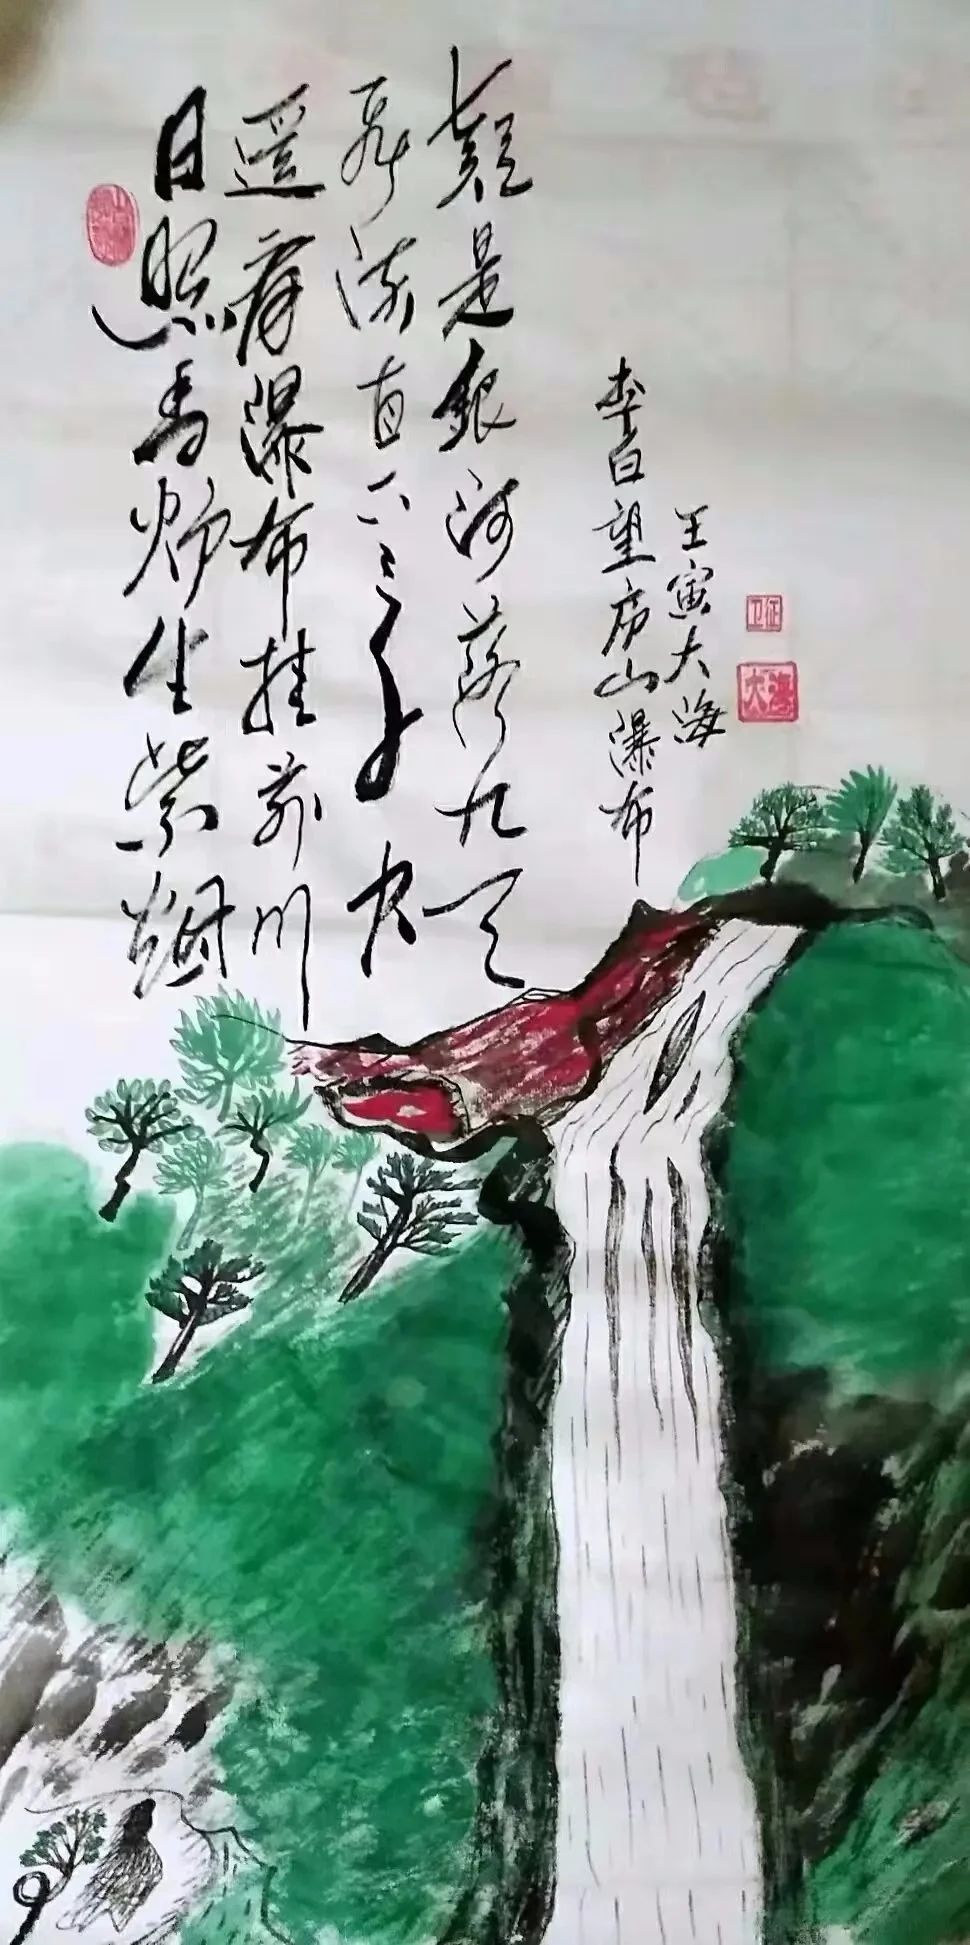 日照香炉生紫烟
遥看瀑布挂前川
飞流直下三千尺
疑是银河落九天
李白望庐山瀑布
壬寅大海
卫征
大海